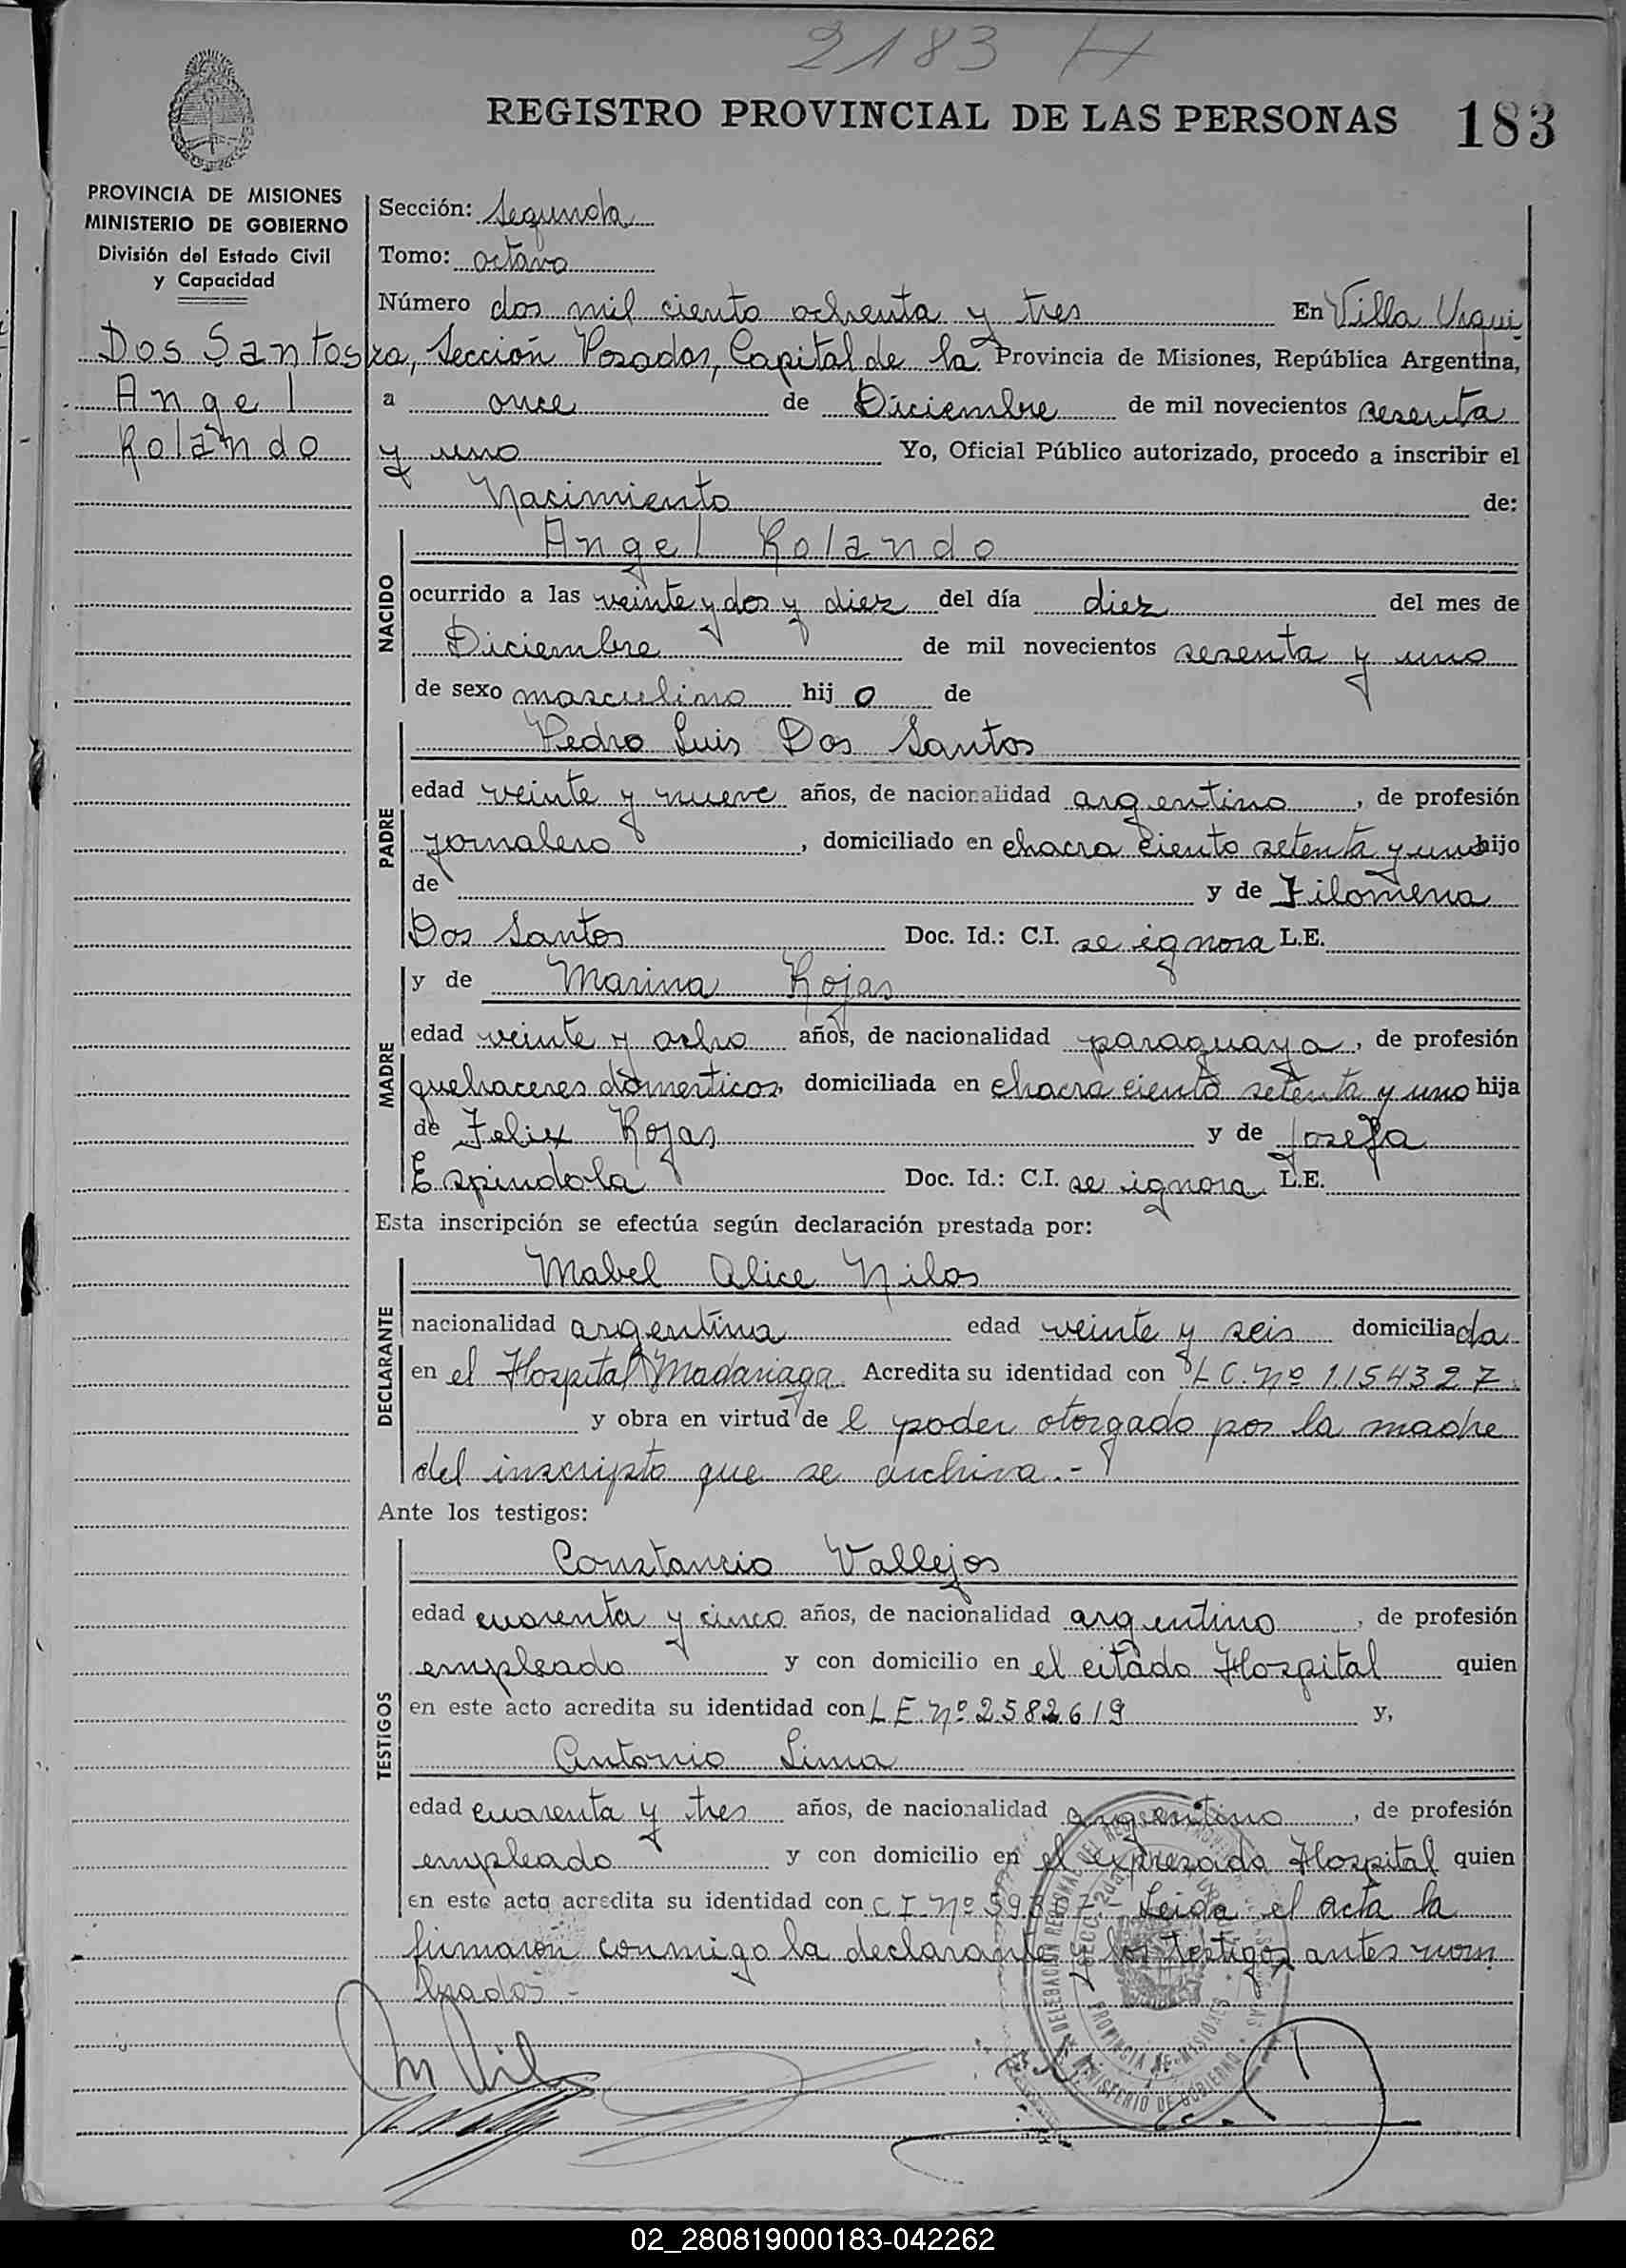 2183 H
REGISTRO PROVINCIAL DE LAS PERSONAS 183
PROVINCIA DE MISIONES
MINISTERIO DE GOBIERNO
División del Estado Civil
y Capacidad
Dos Santos
Angel
Rolando
Sección: Segunda
Tomo: octavo
Número dos mil ciento ochenta y tres En Villa Urqui
za, Sección Posadas, Capital de la Provincia de Misiones, República Argentina,
a once de Diciembre de mil novecientos sesenta
y uno Yo, Oficial Público autorizado, procedo a inscribir el
Nacimiento de:
NACIDO
Angel Rolando
ocurrido a las veinte y dos y diez del día diez del mes de
Diciembre de mil novecientos sesenta y uno
de sexo masculino hijo de
PADRE
Pedro Luis Dos Santos
edad veinte y nueve años, de nacionalidad argentino, de profesión
jornalero, domiciliado en chacra ciento setenta y uno hijo
de y de Filomena
Dos Santos Doc. Id.: C.I. se ignora L.E.
MADRE
y de Marina Rojas
edad veinte y ocho años, de nacionalidad paraguaya, de profesión
quehaceres domesticos, domiciliada en chacra ciento setenta y uno hija
de Felix Rojas y de Josefa
Espindola Doc. Id.: C.I. se ignora L.E.
Esta inscripción se efectúa según declaración prestada por:
DECLARANTE
Mabel Alice Nilos
nacionalidad argentina edad veinte y seis domiciliada
en el Hospital Madariaga Acredita su identidad con L C. Nº 1.154327.
y obra en virtud de l poder otorgado por la madre
del inscripto que se archiva.-
Ante los testigos:
TESTIGOS
Constancio Vallejos
edad cuarenta y cinco años, de nacionalidad argentino, de profesión
empleado y con domicilio en el citado Hospital quien
en este acto acredita su identidad con L E. Nº 2582619 y,
Antonio Lima
edad cuarenta y tres años, de nacionalidad argentino, de profesión
empleado y con domicilio en el expresado Hospital quien
en este acto acredita su identidad con C I Nº Leida el acta la
firmaron conmigo la declarante y los testigos antes nom
brados.-
DELEGACION REGIONAL DEL REGISTRO
PROVINCIA DE MISIONES
MINISTERIO DE GOBIERNO
02_280819000183-042262